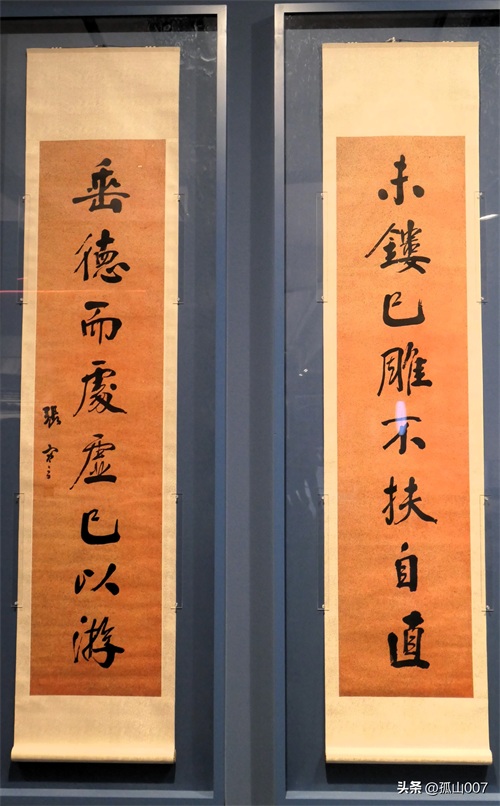 未鏤已雕不扶自直
垂德而處虛己以游
張謇
头条 @孤山007